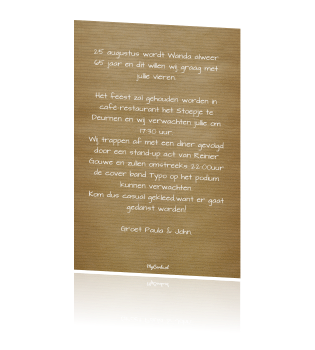 25 augustus wordt Wanda alweer
65 jaar en dit willen wij graag met
jullie vieren.
Het feest zal gehouden worden in
cafe-restaurant het Stoepje te
Deurnen en wij verwachten jullie om
17:30 uur.
Wij trappen af met een diner gevolgd
door een stand-up act van Reinier
Gouwe en zullen omstreeks 22:00uur
de cover band Typo op het podium
kunnen verwachten.
Kom dus casual gekleed,want er gaat
gedanst worden!
Groet Paula & John